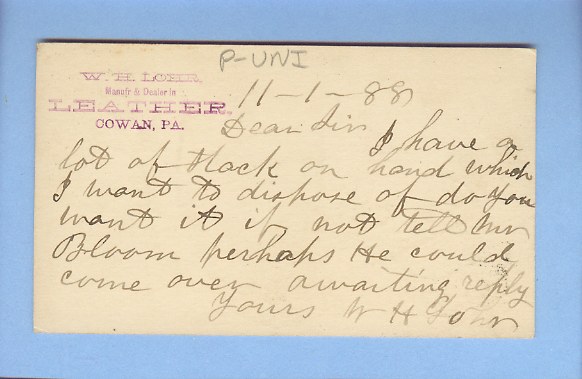 P-UNI
W. H. LOHR,
Manufr & Dealer in
LEATHER,
COWAN, PA.
11-1-88
Dear Sir
I have a
lot of Hack on hand which
I want to dispose of do you
want it if not tell Mr
Bloom perhaps He could
come over awaiting reply
Yours W H Lohr